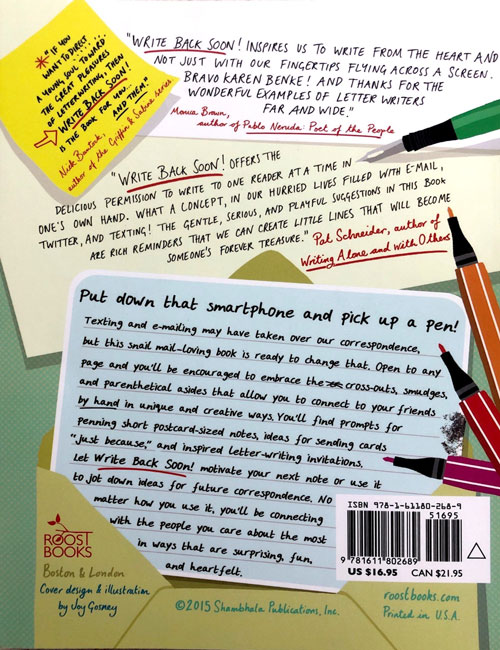 "IF YOU
WANT TO DIRECT
A YOUNG SOUL TOWARD
THE GREAT PLEASURES
OF LETTER WRITING, THEN
WRITE BACK SOON!
IS THE BOOK FOR YOU...
AND THEM."
Nick Bantock,
author of the Griffin & Sabine series
"WRITE BACK SOON! INSPIRES US TO WRITE FROM THE HEART AND
NOT JUST WITH OUR FINGERTIPS FLYING ACROSS A SCREEN.
BRAVO KAREN BENKE! AND THANKS FOR THE
WONDERFUL EXAMPLES OF LETTER WRITERS
FAR AND WIDE."
Monica Brown,
author of Pablo Neruda: Poet of the People
"WRITE BACK SOON! OFFERS THE
DELICIOUS PERMISSION TO WRITE TO ONE READER AT A TIME IN
ONE'S OWN HAND. WHAT A CONCEPT, IN OUR HURRIED LIVES FILLED WITH E-MAIL,
TWITTER, AND TEXTING! THE GENTLE, SERIOUS, AND PLAYFUL SUGGESTIONS IN THIS BOOK
ARE RICH REMINDERS THAT WE CAN CREATE LITTLE LINES THAT WILL BECOME
SOMEONE'S FOREVER TREASURE." Pat Schneider, author of
Writing Alone and with Others
Put down that smartphone and pick up a pen!
Texting and e-mailing may have taken over our correspondence,
but this snail mail-loving book is ready to change that. Open to any
page and you'll be encouraged to embrace the cross-outs, smudges,
and parenthetical asides that allow you to connect to your friends
by hand in unique and creative ways. You'll find prompts for
penning short postcard-sized notes, ideas for sending cards
"just because," and inspired letter-writing invitations.
Let Write Back Soon! motivate your next note or use it
to jot down ideas for future correspondence. No
matter how you use it, you'll be connecting
with the people you care about the most
in ways that are surprising, fun,
and heartfelt.
ISBN 978-1-61180-268-9
51695
9 781611 802689
US $16.95 CAN $21.95
ROOST
BOOKS
Boston & London
Cover design & illustration
by Joy Gosney
©2015 Shambhala Publications, Inc.
roostbooks.com
Printed in U.S.A.